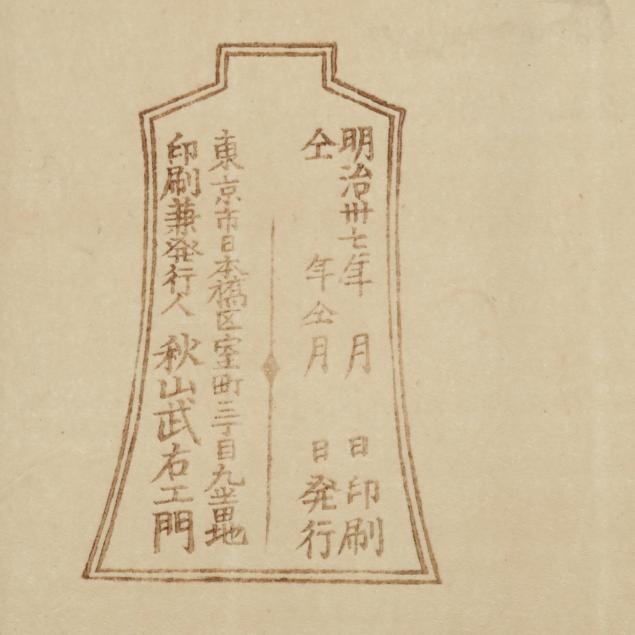 明治卅七年　月　日印刷
仝　年仝月　日発行
東京市日本橋区室町三丁目九番地
印刷兼発行人　秋山武右エ門